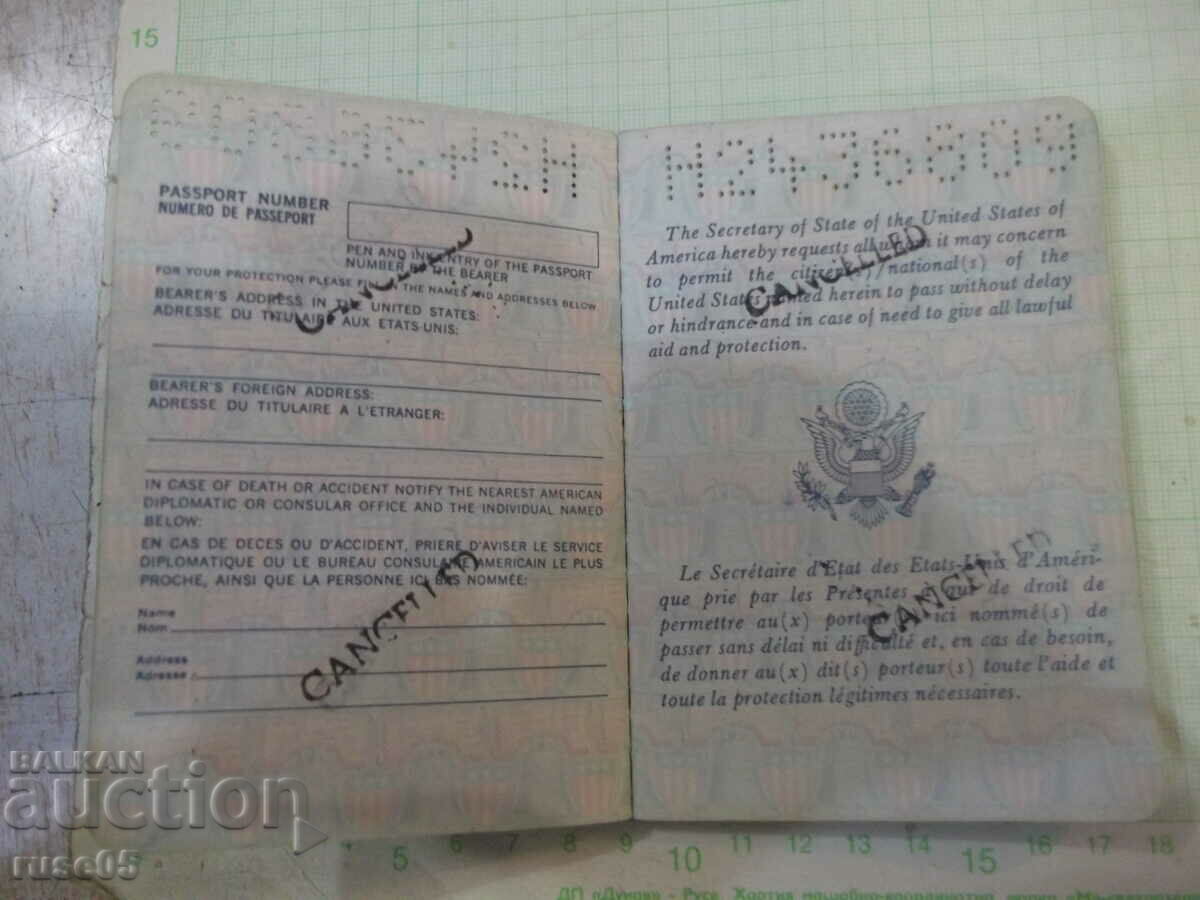 15
PASSPORT NUMBER
NUMERO DE PASSEPORT
PEN AND INK ENTRY OF THE PASSPORT
NUMBER BY THE BEARER
FOR YOUR PROTECTION PLEASE THE NAMES AND ADDRESSES BELOW
BEARER'S ADDRESS IN THE UNITED STATES:
ADRESSE DU TITULAIRE AUX ETATS-UNIS:
BEARER'S FOREIGN ADDRESS:
ADRESSE DU TITULAIRE A L'ETRANGER:
IN CASE OF DEATH OR ACCIDENT NOTIFY THE NEAREST AMERICAN
DIPLOMATIC OR CONSULAR OFFICE AND THE INDIVIDUAL NAMED
BELOW:
EN CAS DE DECES OU D'ACCIDENT, PRIERE D'AVISER LE SERVICE
DIPLOMATIQUE OU LE BUREAU CONSULAIRE AMERICAIN LE PLUS
PROCHE, AINSI QUE LA PERSONNE ICI BAS NOMMÉE:
Name
Nom
Address
Adresse
CANCELLED
CANCELLED
H2436809
The Secretary of State of the United States of
America hereby requests all whom it may concern
to permit the citizen(s)/national(s) of the
United States named herein to pass without delay
or hindrance and in case of need to give all lawful
aid and protection.
CANCELLED
Le Secrétaire d'Etat des Etats-Unis d'Améri-
que prie par les Présentes à qui de droit de
permettre au(x) porteur ici nommé(s) de
passer sans délai ni difficulté et, en cas de besoin,
de donner au(x) dit(s) porteur(s) toute l'aide et
toute la protection légitimes nécessaires.
CANCELLED
BALKAN
auction
ruse05
5 6 7 8 9 10 11 12 13 14 15 16 17 18
ДП «Дунав» - Русе. Хартия